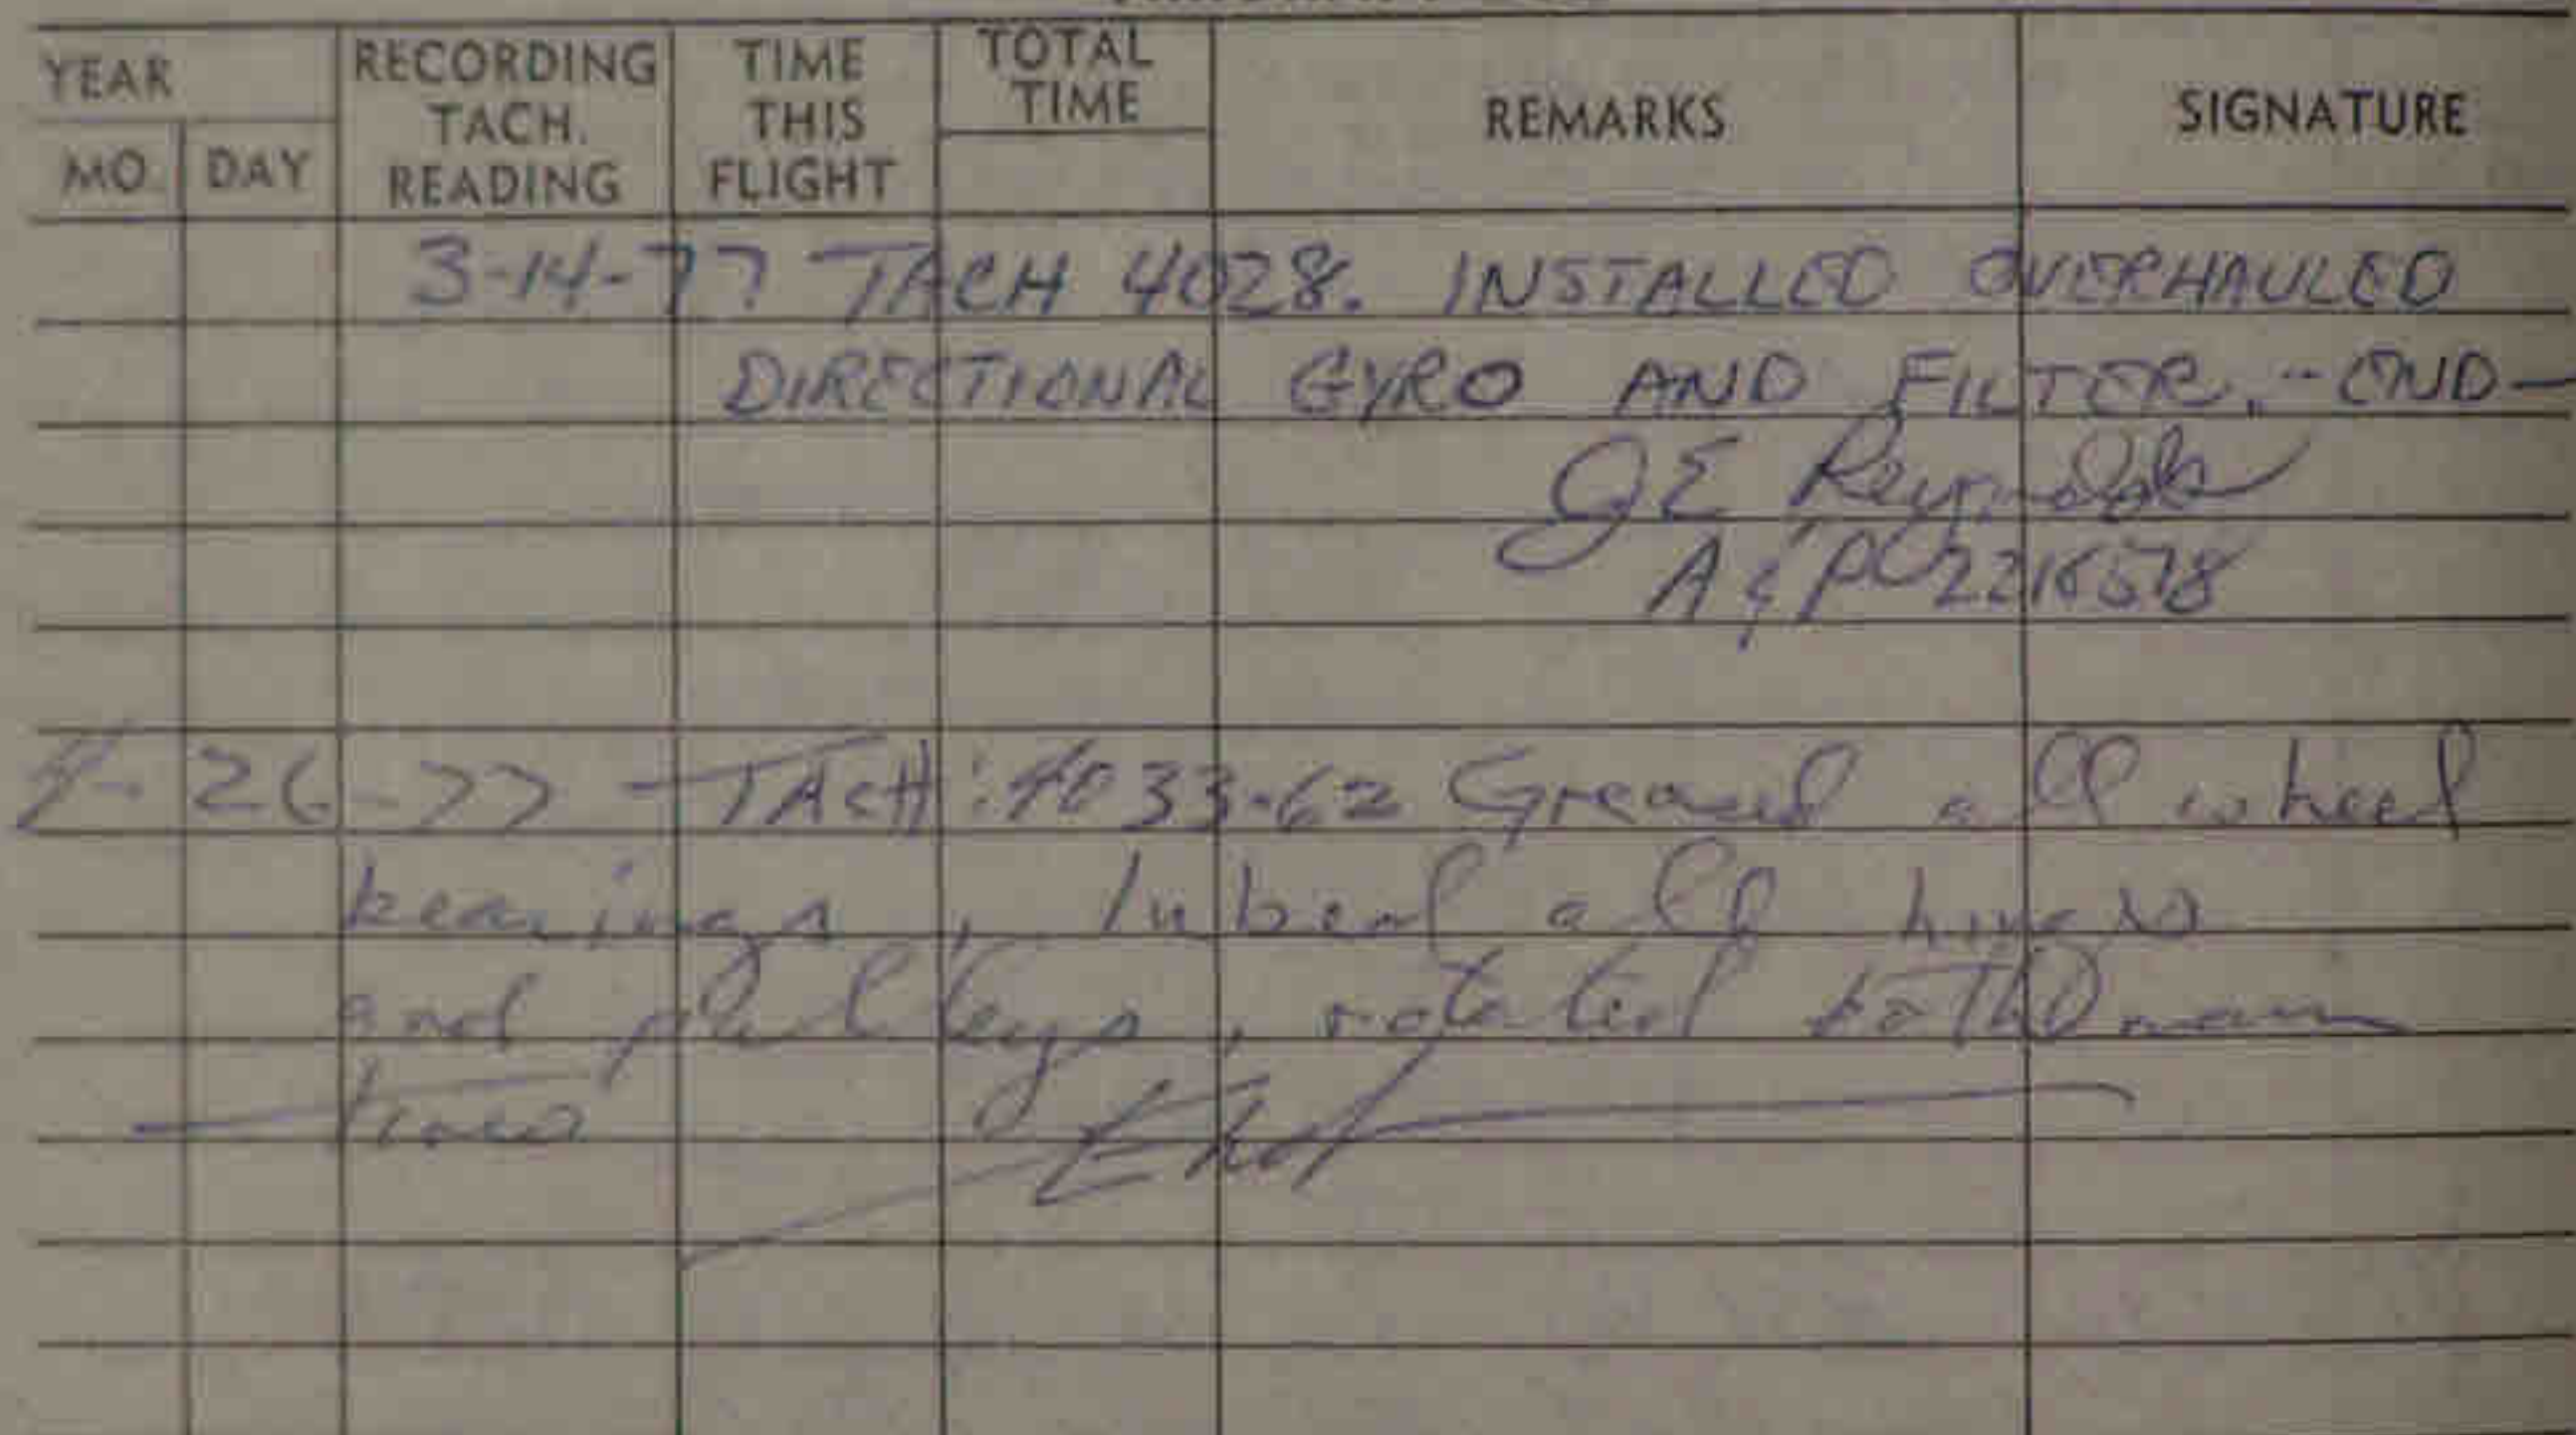 YEAR
MO. DAY
RECORDING TACH. READING
TIME THIS FLIGHT
TOTAL TIME
REMARKS
SIGNATURE
3-14-77 TACH 4028. INSTALLED OVERHAULED
DIRECTIONAL GYRO AND FILTER. -- END —
JE Reynolds
A & P
26-77 TACH: 4033.62 Greased all wheel
bearings, lubed all hinges
and pulleys, rotated both main
tires
End